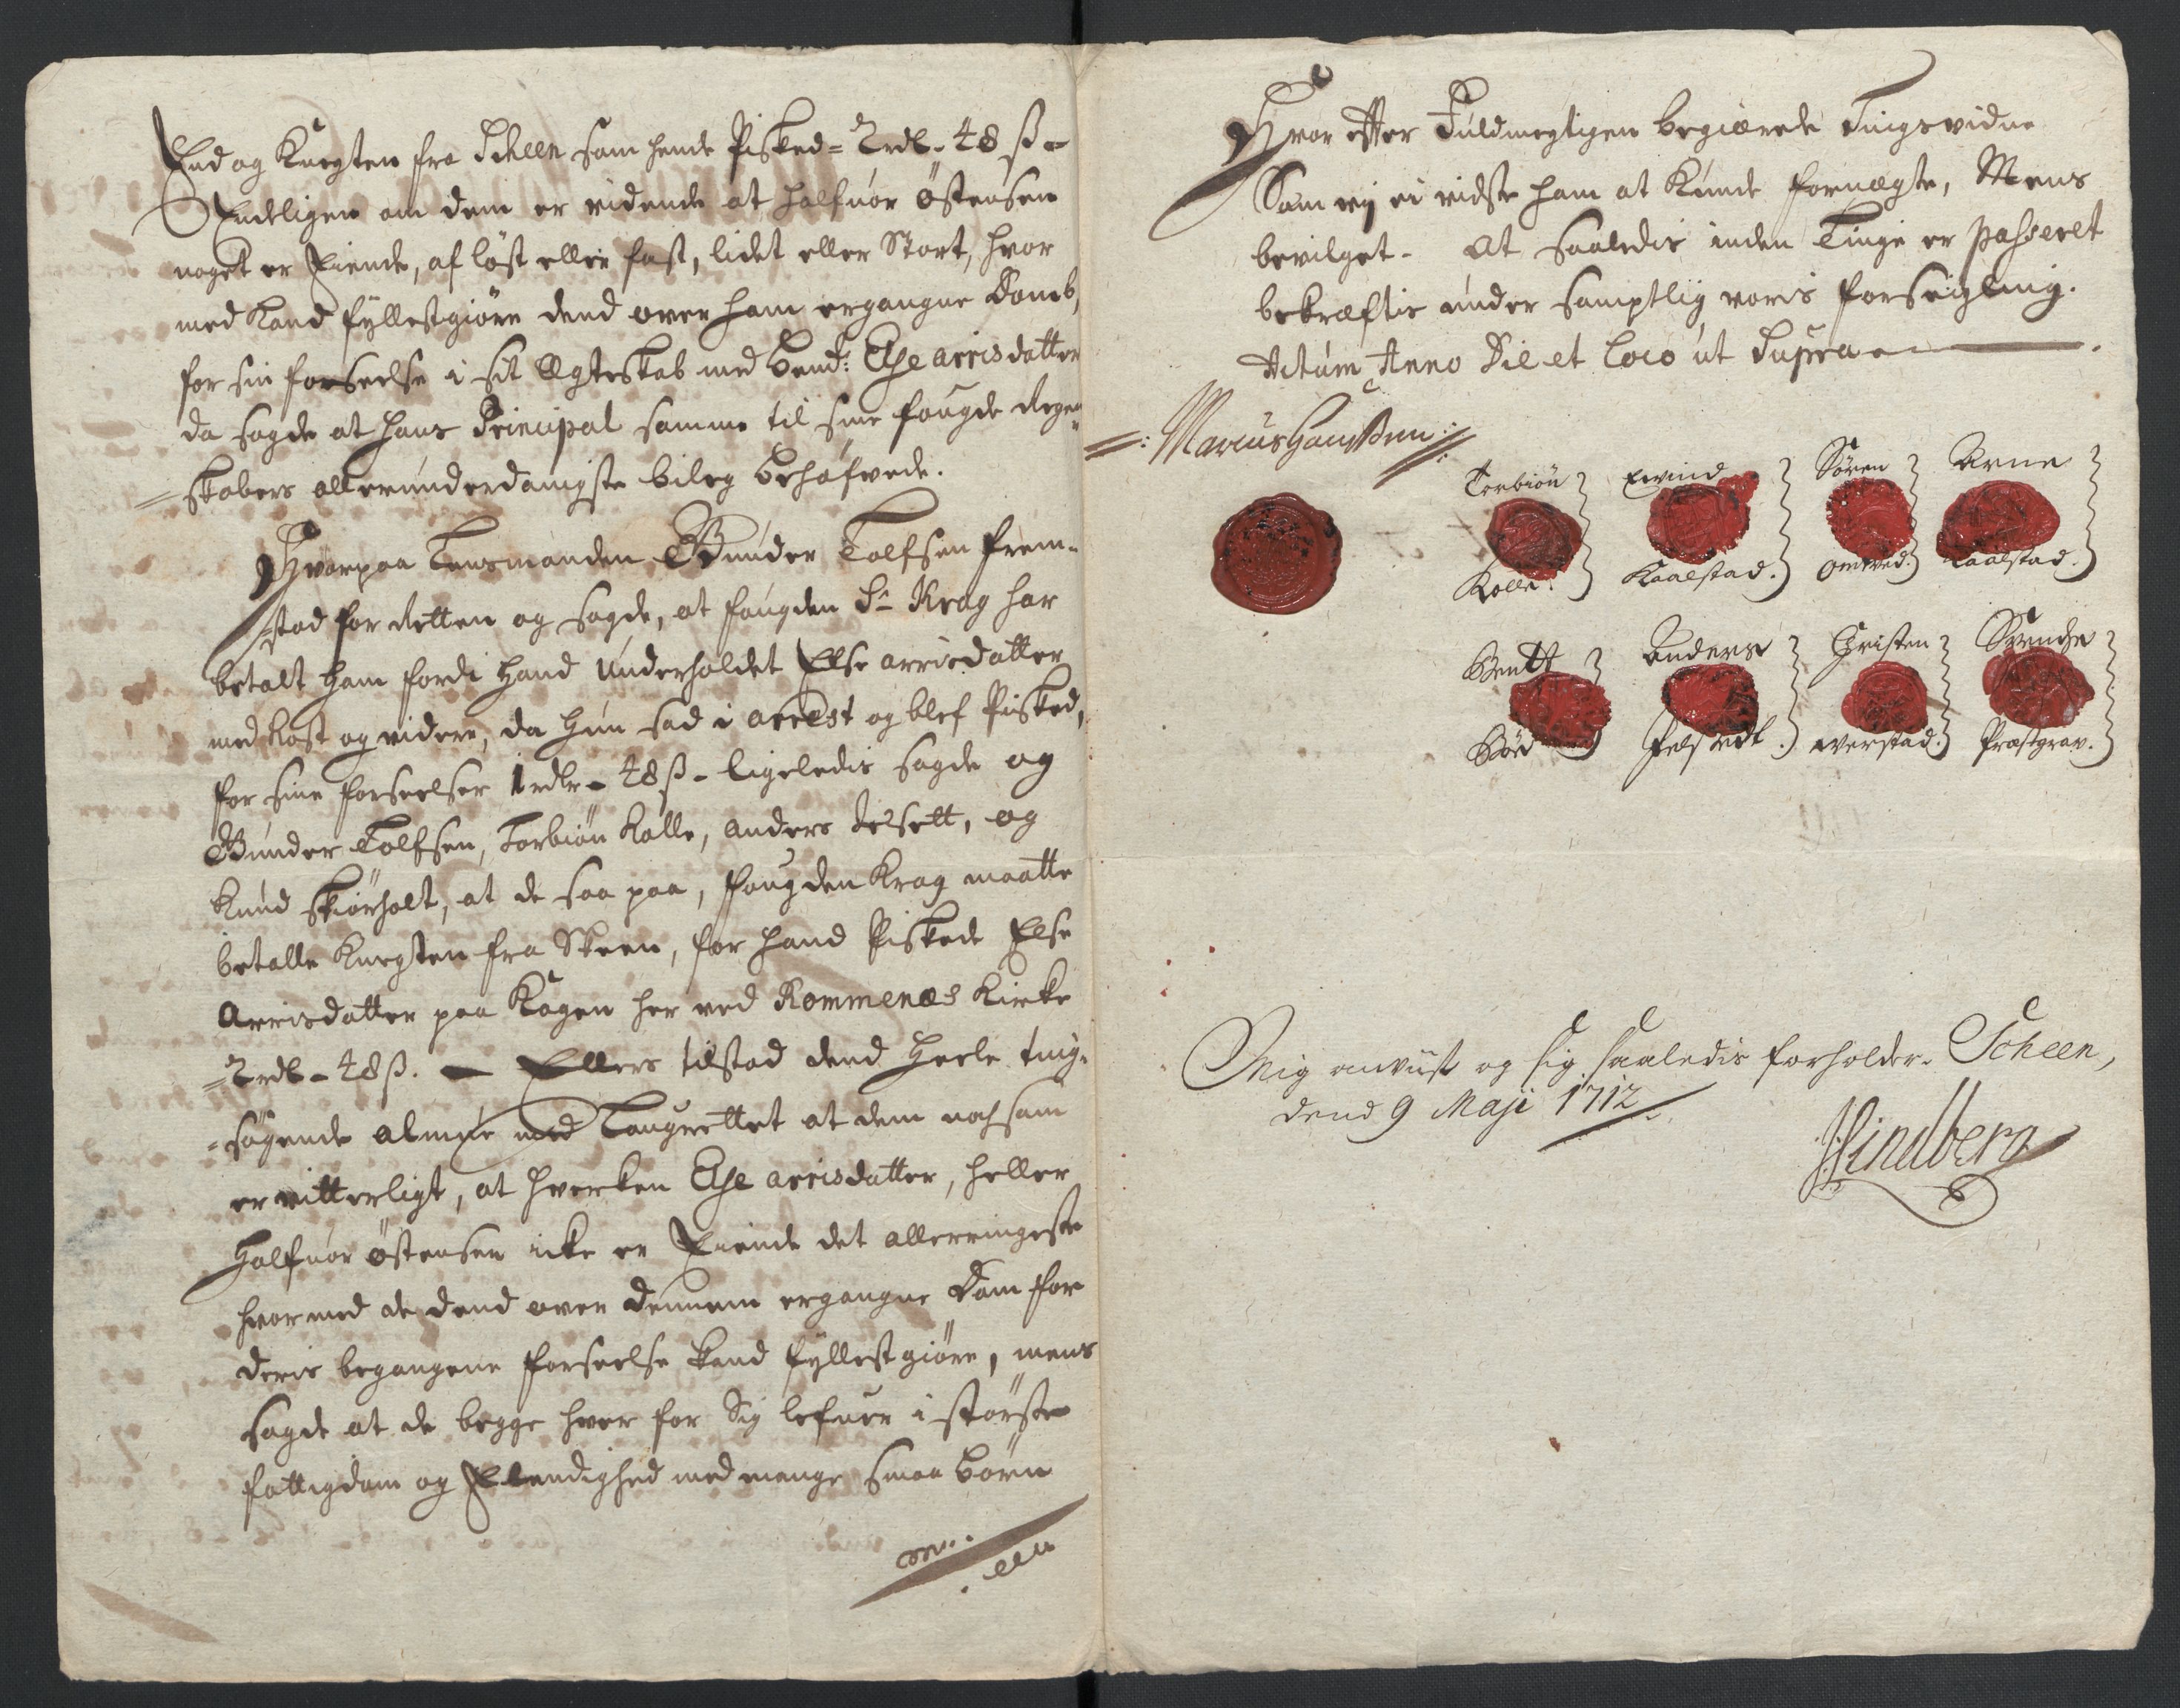 End og Knegten fra Scheen som hende Pisked = 2 rdl - 48 ß -
Endeligen om dem er vidende at Halfuor Östensen
noget er Eiende, af löst eller fast, lidet eller Stort, hvor
med Kand fyllestgiöre dend over ham ergangne Domb,
for sin forseelse i sit Egteskab med bemt: Else arrisdatter
da sagde at hans Principal samme til sine fougde Regen
= skabers allerunderdanigste bileg behøfvede.
Hvorpaa Lensmanden Gunder Tolfsen frem-
stod for Retten og sagde, at fougden Sr Krag har
betalt ham fordi hand underholdet Else arrisdatter
med Kost og videre, da hun sad i arrest og blef Pisked,
for sine forseelser 1 rdlr - 48 ß - ligeledis sagde og
Gunder Tolfsen, Torbiön Kolle, Anders felsett, og
Knud Skiörholt, at de saa paa, fougden Krag maatte
betalle Knegten fra Skeen, for hand Piskede Else
Arrisdatter paa Kagen her ved Rommenæs Kirke
= 2 rdl - 48 ß. — Ellers tilstod dend heele ting-
= søgende almue med Laugrettet at dem noksom
er vitterligt, at hverken Else arrisdatter, heller
Halfuor östensen icke er Eiende det allerringeste
hvormed de dend over dennem ergangne Dom for
deris begangene forseelse kand fyllestgiöre, mens
sagde at de begge hver for Sig lefuer i störste
fattigdom og Elendighed med mange smaa börn
Hvor effter Fuldmegtigen begiærede Tingsvidne
Som vij ei vidste ham at Kunde fornægte, Mens
bevilget. At saaledis inden Tinge er passeret
bekræftis under samptlig voris forseigling.
Actum Anno Die et Loco ut Supra
Marcus Hanssen
Torbiön Eivind Sören Arne
Kolle. Kaalstad. Omtved. Kaalstad.
Bentt Anders Christen Svenche
felsedt. Averstad. Præstgrav.
Mig anviist og sig saaledis forholder. Scheen,
dend 9 Maji 1712
HLindberg